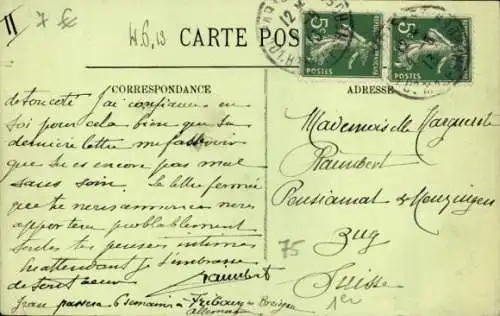 11
7
W.6.13
CARTE POS
5c
POSTES
5c
POSTES
CORRESPONDANCE
ADRESSE
de ton coté J'ai confiance en
toi pour cela bien que ta
dernière lettre me fasse voir
que tu es encore pas mal
sans soin. La lettre fermée
que tu nous annonces nous
apportera problablement
toutes tes pensées intimes
En attendant je t'embrasse
de tout coeur
Jean passera 6 semaines à Fribourg en
allemand
Mademoiselle Marguerite
Flambert
Pensionnat de
Zug
Suisse
75
1er